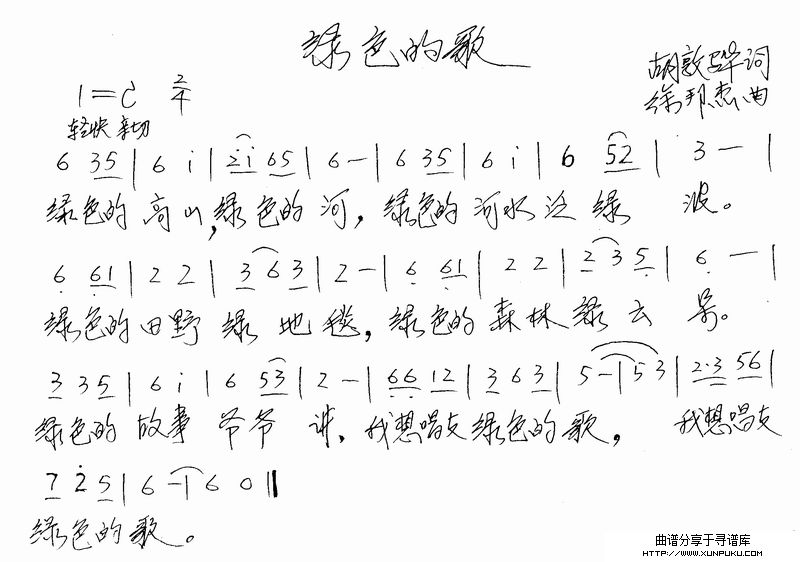 绿色的歌
胡敦骅词
1=C 2/4
徐邦杰曲
轻快 亲切
6 35 | 6 i | 2i 65 | 6 - | 6 35 | 6 i | 6 52 | 3 - |
绿色的高山,绿色的河,绿色的河水泛绿波。
6 61 | 2 2 | 3 6 3 | 2 - | 6 61 | 2 2 | 2 3 5 | 6 - |
绿色的田野绿地毯,绿色的森林绿云朵。
3 3 5 | 6 i | 6 53 | 2 - | 66 12 | 3 6 3 | 5 - | 5 3 | 2·3 56 |
绿色的故事爷爷讲,我想唱支绿色的歌, 我想唱支
7 2 5 | 6 - | 6 0 ‖
绿色的歌。
曲谱分享于寻谱库
HTTP://WWW.XUNPUKU.COM